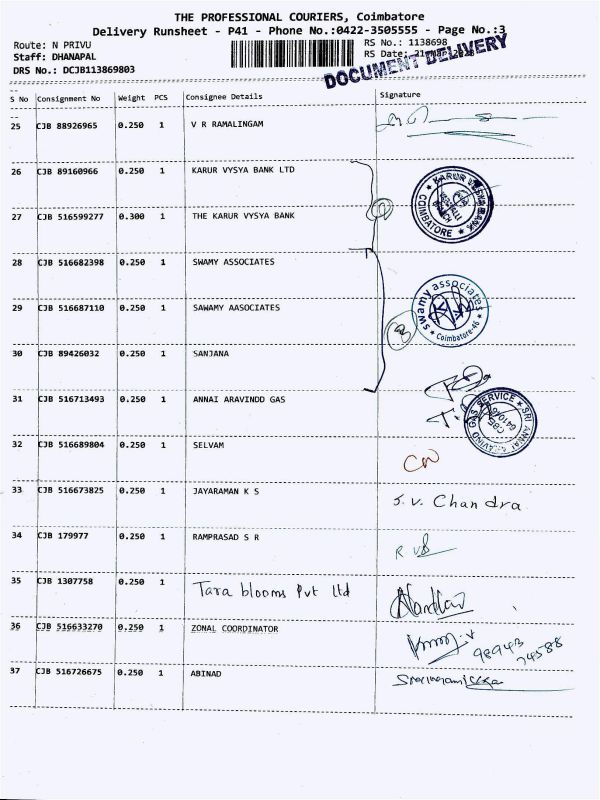 THE PROFESSIONAL COURIERS, Coimbatore
Delivery Runsheet - P41 - Phone No.:0422-3505555 - Page No.:3
Route: N PRIVU
RS No.: 1138698
Staff: DHANAPAL
RS Date:
DRS No.: DCJB113869803
DOCUMENT DELIVERY
S No Consignment No Weight PCS Consignee Details Signature
25 CJB 88926965 0.250 1 V R RAMALINGAM
26 CJB 89160966 0.250 1 KARUR VYSYA BANK LTD
KARUR VYSYA BANK
COIMBATORE
27 CJB 516599277 0.300 1 THE KARUR VYSYA BANK
28 CJB 516682398 0.250 1 SWAMY ASSOCIATES
29 CJB 516687110 0.250 1 SAWAMY AASOCIATES
swamy associates
Coimbatore-46
30 CJB 89426032 0.250 1 SANJANA
31 CJB 516713493 0.250 1 ANNAI ARAVINDD GAS
SRI ANNAI ARAVIND GAS SERVICE
CBE
641046
32 CJB 516689804 0.250 1 SELVAM
33 CJB 516673825 0.250 1 JAYARAMAN K S S.V. Chandra
34 CJB 179977 0.250 1 RAMPRASAD S R
35 CJB 1307758 0.250 1 Tara blooms Pvt ltd
36 CJB 516633270 0.250 1 ZONAL COORDINATOR 98943
74588
37 CJB 516726675 0.250 1 ABINAD